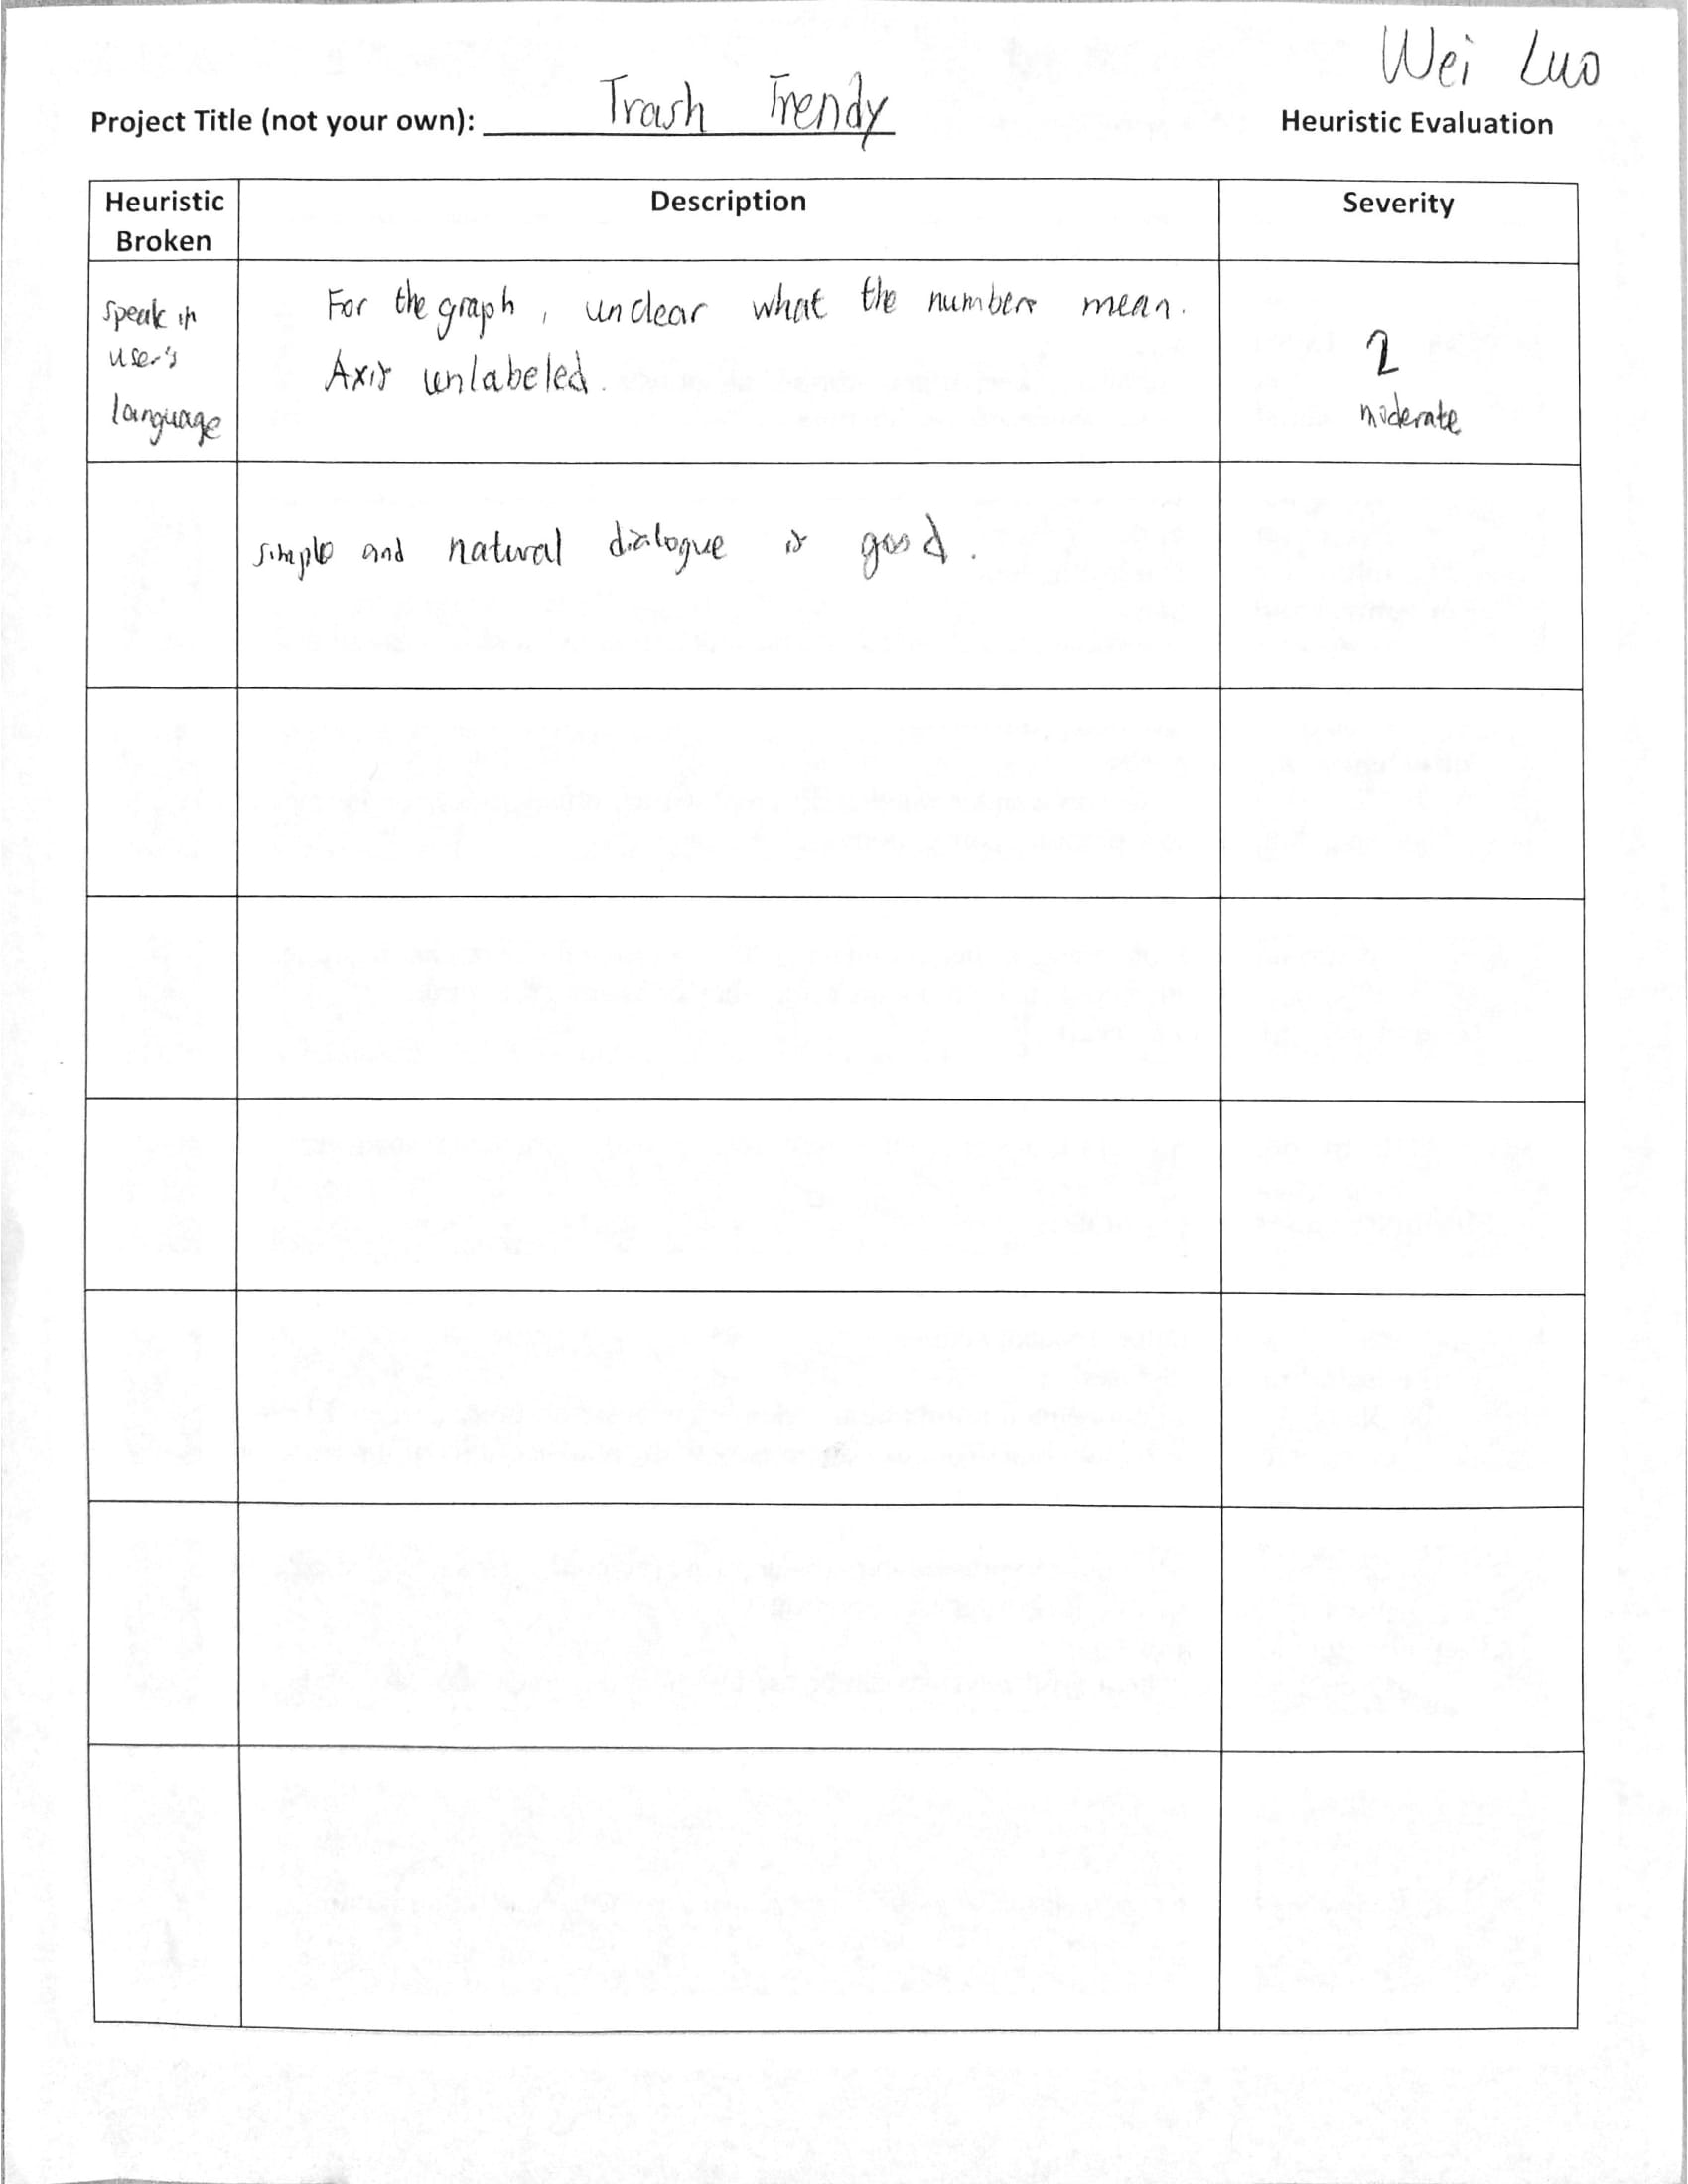 Wei Luo
Project Title (not your own): Trash Trendy
Heuristic Evaluation
Heuristic Broken
Description
Severity
speak in user's language
For the graph, unclear what the numbers mean.
Axis unlabeled.
2
moderate
simple and natural dialogue is good.